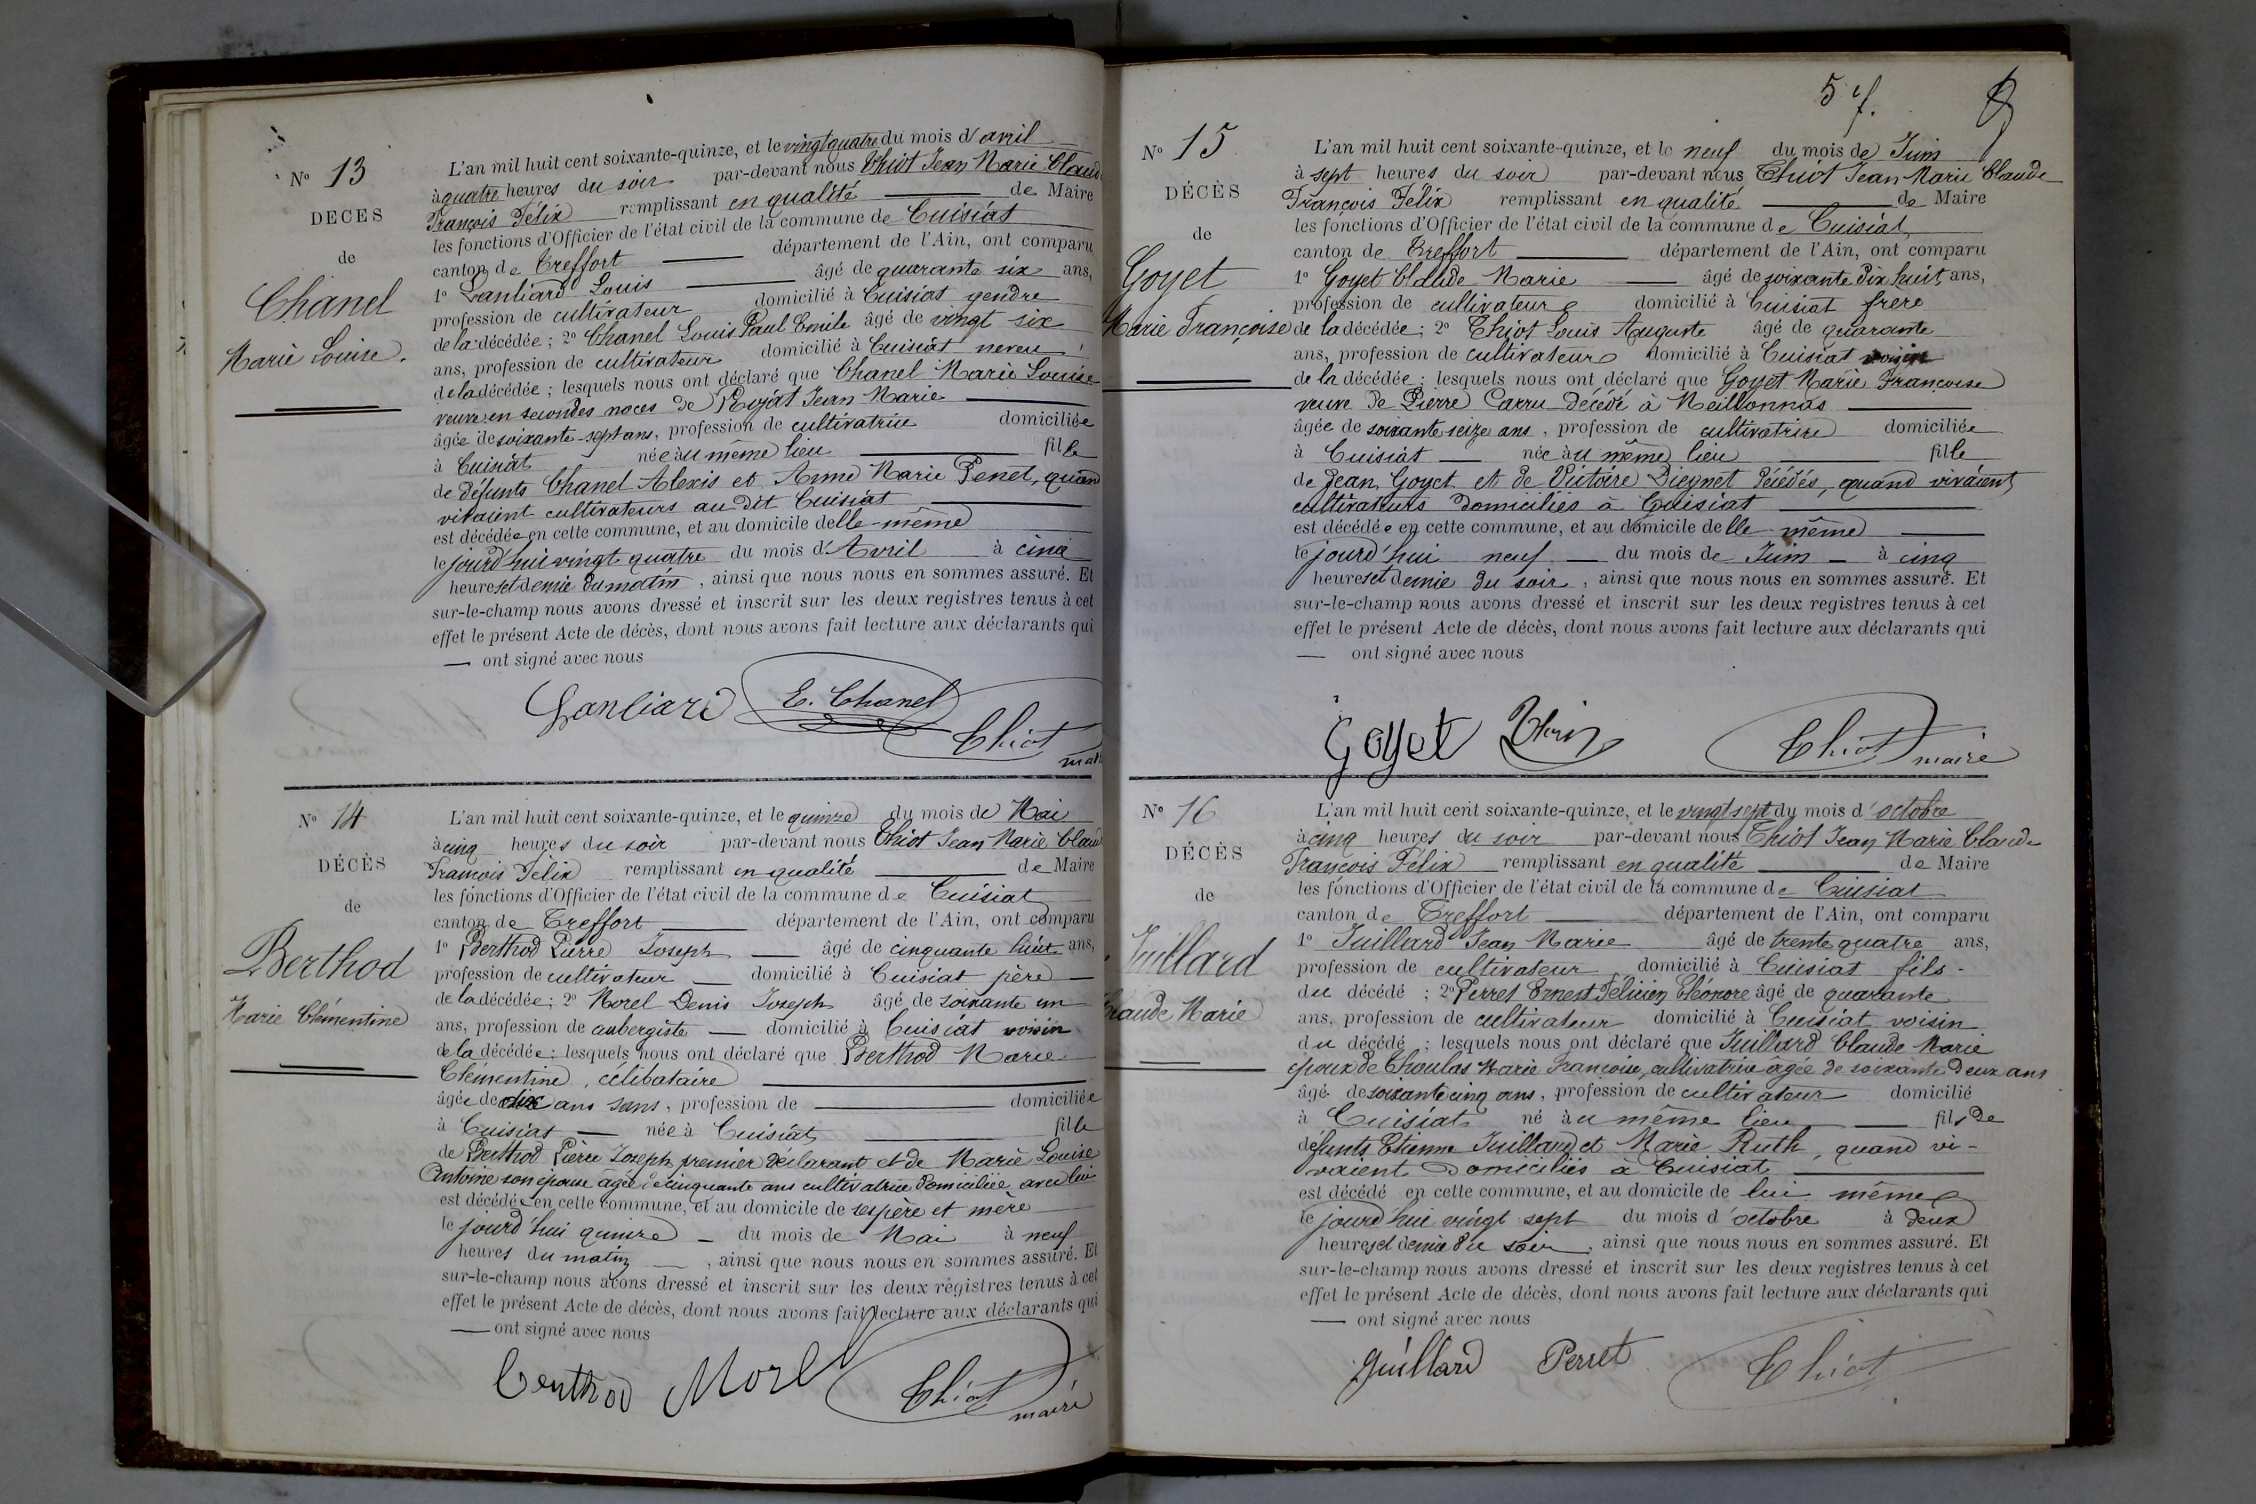 Nº 13
DÉCÈS
de
Chanel
Marie Louise.
L'an mil huit cent soixante-quinze, et le vingt quatre du mois d'avril
à quatre heures du soir par-devant nous Thiot Jean Marie Claude
François Félix remplissant en qualité de Maire
les fonctions d'Officier de l'état civil de la commune de Cuisiat
canton de Treffort département de l'Ain, ont comparu
1º Lanliard Louis âgé de quarante six ans,
profession de cultivateur domicilié à Cuisiat gendre
de la décédée ; 2º Chanel Louis Paul Emile âgé de vingt six
ans, profession de cultivateur domicilié à Cuisiat neveu
de la décédée ; lesquels nous ont déclaré que Chanel Marie Louise
veuve en secondes noces de Royat Jean Marie
âgée de soixante-sept ans, profession de cultivatrice domiciliée
à Cuisiat née au même lieu fille
de défunts Chanel Alexis et Anne Marie Penet, quand
vivaient cultivateurs au dit Cuisiat
est décédée en cette commune, et au domicile delle-même
le jourd'hui vingt quatre du mois d'Avril à cinq
heures et demie du matin, ainsi que nous nous en sommes assuré. Et
sur-le-champ nous avons dressé et inscrit sur les deux registres tenus à cet
effet le présent Acte de décès, dont nous avons fait lecture aux déclarants qui
— ont signé avec nous
Lanliard E. Chanel
Thiot
maire
Nº 14
DÉCÈS
de
Berthod
Marie Clémentine
L'an mil huit cent soixante-quinze, et le quinze du mois de Mai
à cinq heures du soir par-devant nous Thiot Jean Marie Claude
François Félix remplissant en qualité de Maire
les fonctions d'Officier de l'état civil de la commune de Cuisiat
canton de Treffort département de l'Ain, ont comparu
1º Berthod Pierre Joseph âgé de cinquante huit ans,
profession de cultivateur domicilié à Cuisiat père
de la décédée ; 2º Morel Denis Joseph âgé de soixante un
ans, profession de aubergiste domicilié à Cuisiat voisin
de la décédée ; lesquels nous ont déclaré que Berthod Marie
Clémentine, célibataire
âgée de dix ans sans, profession de domiciliée
à Cuisiat née à Cuisiat fille
de Berthod Pierre Joseph premier déclarant et de Marie Louise
Antoine son épouse âgée de cinquante ans cultivatrice domiciliée avec lui
est décédée en cette commune, et au domicile de ses père et mère
le jourd'hui quinze du mois de Mai à neuf
heures du matin, ainsi que nous nous en sommes assuré. Et
sur-le-champ nous avons dressé et inscrit sur les deux registres tenus à cet
effet le présent Acte de décès, dont nous avons fait lecture aux déclarants qui
— ont signé avec nous
Berthod Morel
Thiot
maire
57.
Nº 15
DÉCÈS
de
Goyet
Marie Françoise
L'an mil huit cent soixante-quinze, et le neuf du mois de Juin
à sept heures du soir par-devant nous Thiot Jean Marie Claude
François Félix remplissant en qualité de Maire
les fonctions d'Officier de l'état civil de la commune de Cuisiat
canton de Treffort département de l'Ain, ont comparu
1º Goyet Claude Marie âgé de soixante dix huit ans,
profession de cultivateur domicilié à Cuisiat frère
de la décédée ; 2º Thiot Louis Auguste âgé de quarante
ans, profession de cultivateur domicilié à Cuisiat voisin
de la décédée ; lesquels nous ont déclaré que Goyet Marie Françoise
veuve de Pierre Carru décédé à Meillonnas
âgée de soixante seize ans, profession de cultivatrice domiciliée
à Cuisiat née au même lieu fille
de Jean Goyet et de Victoire Dieynet décédés, quand vivaient
cultivateurs domiciliés à Cuisiat
est décédée en cette commune, et au domicile delle-même
le jourd'hui neuf du mois de Juin à cinq
heures et demie du soir, ainsi que nous nous en sommes assuré. Et
sur-le-champ nous avons dressé et inscrit sur les deux registres tenus à cet
effet le présent Acte de décès, dont nous avons fait lecture aux déclarants qui
— ont signé avec nous
Goyet Thiot Thiot
maire
Nº 16
DÉCÈS
de
Juillard
Claude Marie
L'an mil huit cent soixante-quinze, et le vingt sept du mois d'octobre
à cinq heures du soir par-devant nous Thiot Jean Marie Claude
François Félix remplissant en qualité de Maire
les fonctions d'Officier de l'état civil de la commune de Cuisiat
canton de Treffort département de l'Ain, ont comparu
1º Juillard Jean Marie âgé de trente quatre ans,
profession de cultivateur domicilié à Cuisiat fils
du décédé ; 2º Perret Ernest Félicien Eléonore âgé de quarante
ans, profession de cultivateur domicilié à Cuisiat voisin
du décédé ; lesquels nous ont déclaré que Juillard Claude Marie
époux de Choulas Marie Françoise, cultivatrice âgée de soixante deux ans
âgé de soixante cinq ans, profession de cultivateur domicilié
à Cuisiat né au même lieu fils de
défunts Etienne Juillard et Marie Ruth, quand vi-
vaient domiciliés à Cuisiat
est décédé en cette commune, et au domicile de lui même
le jourd'hui vingt sept du mois d'octobre à deux
heures et demie du soir, ainsi que nous nous en sommes assuré. Et
sur-le-champ nous avons dressé et inscrit sur les deux registres tenus à cet
effet le présent Acte de décès, dont nous avons fait lecture aux déclarants qui
— ont signé avec nous
Juillard Perret Thiot